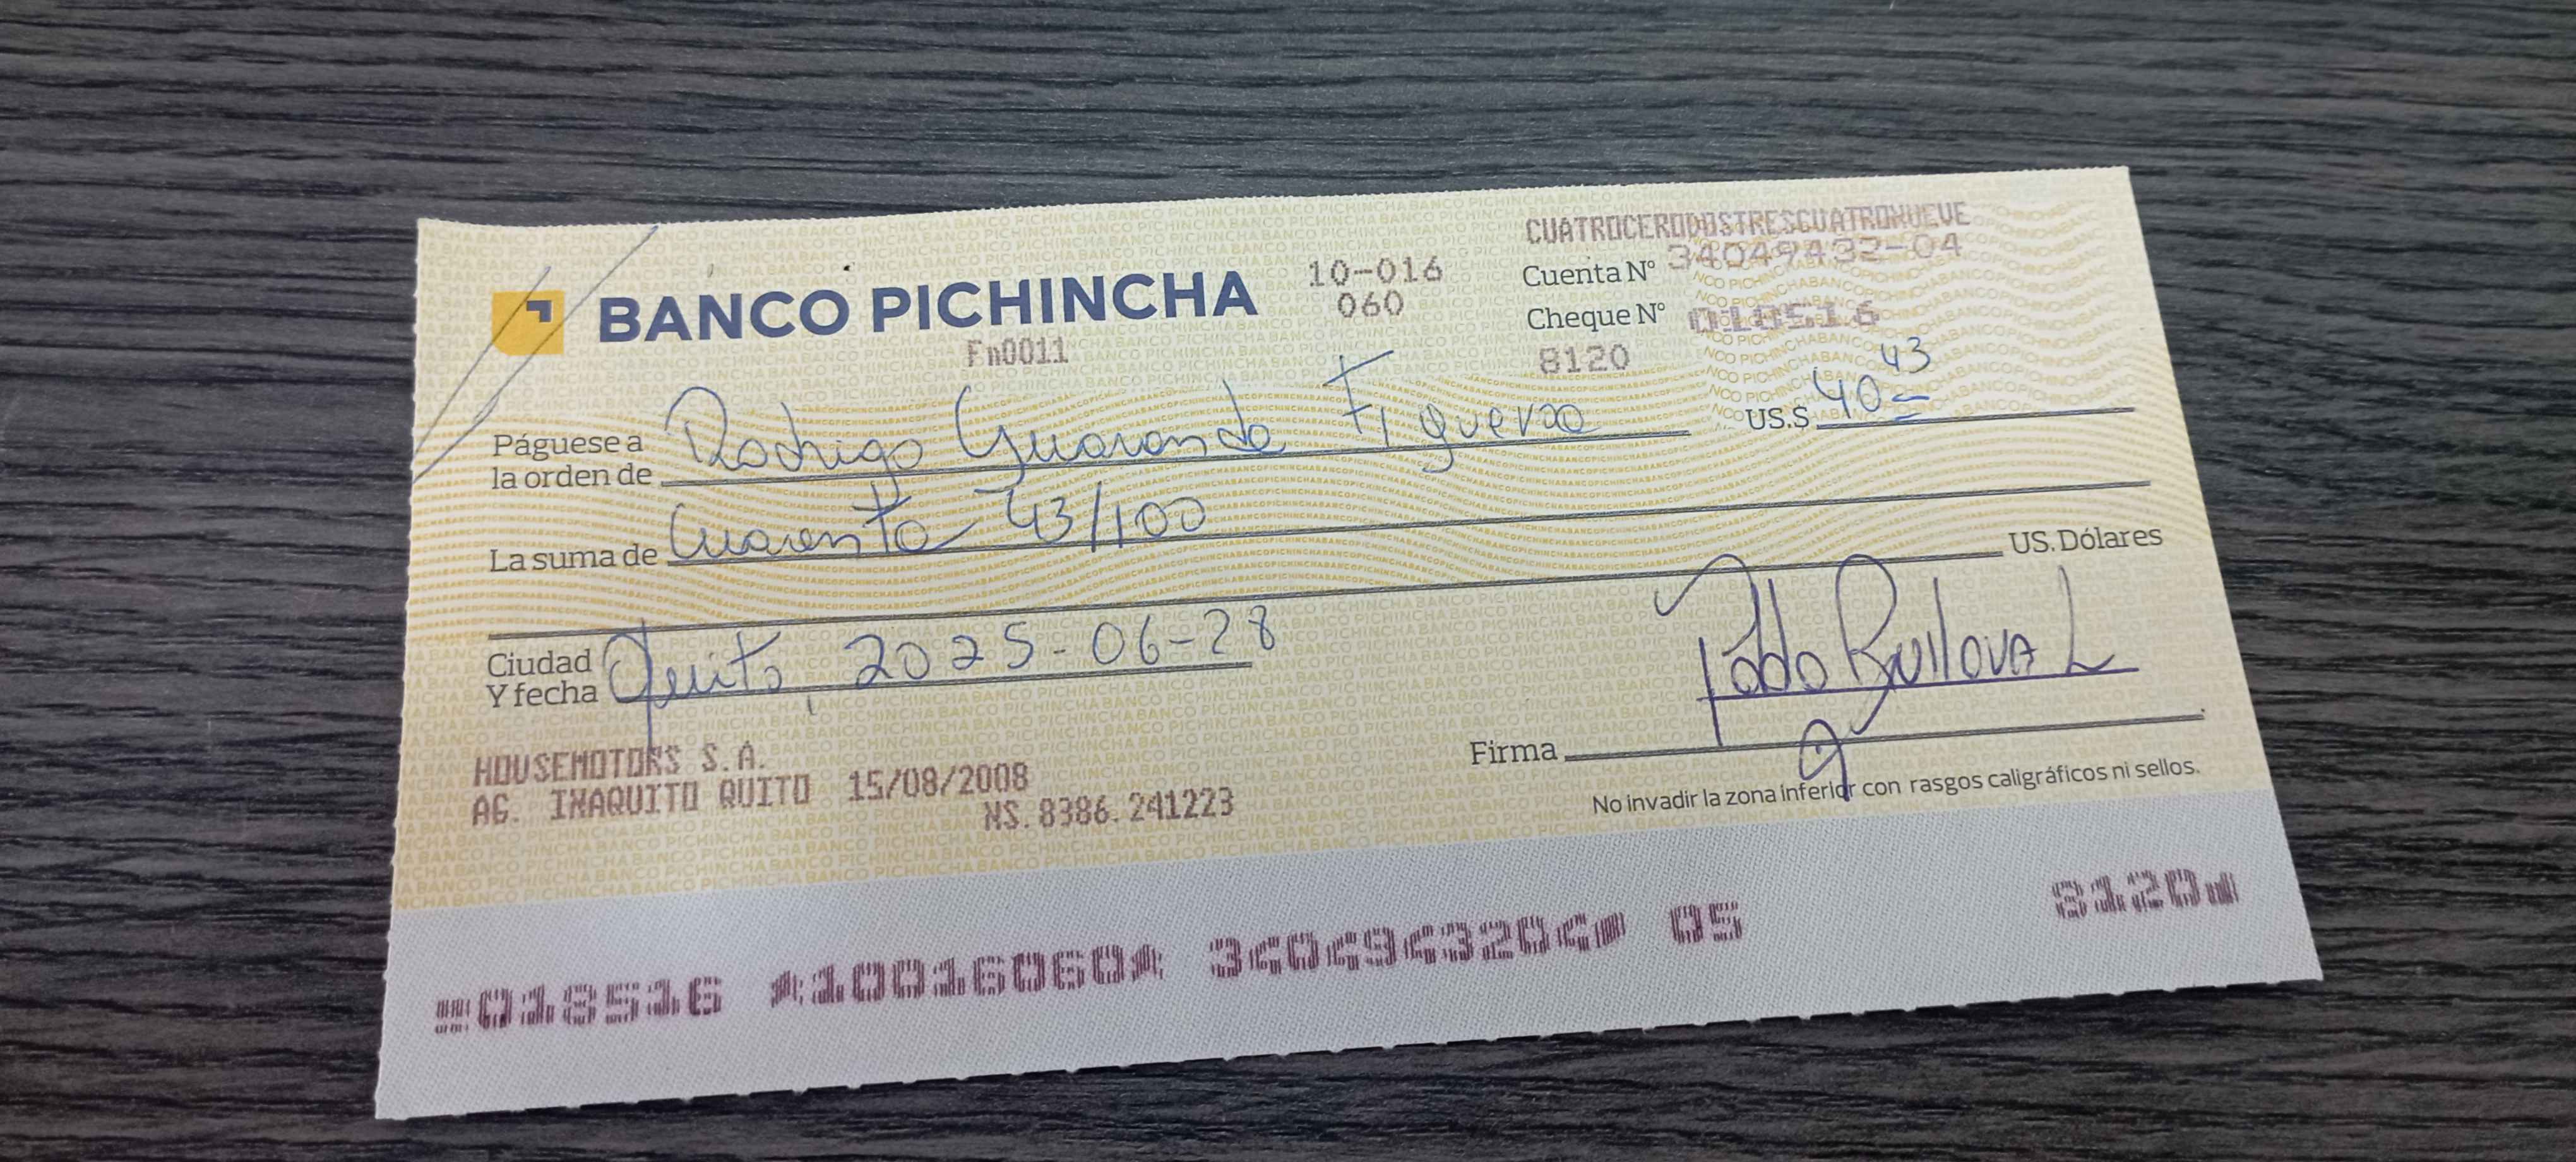 CUATROCERODOSTRESCUATRONUEVE
BANCO PICHINCHA
10-016
060
Cuenta N° 34049432-04
Cheque N° 018516
Fn0011
8120
Páguese a
la orden de Rodrigo Guaranda Figueroa US.$ 40 43
La suma de Cuarenta 43/100
US. Dólares
Ciudad
Y fecha Quito, 2025-06-28
HOUSEMOTORS S.A.
AG. INAQUITO QUITO 15/08/2008
NS.8386.241223
Firma
No invadir la zona inferior con rasgos caligráficos ni sellos.
018516 10016060 3404943204 05 8120